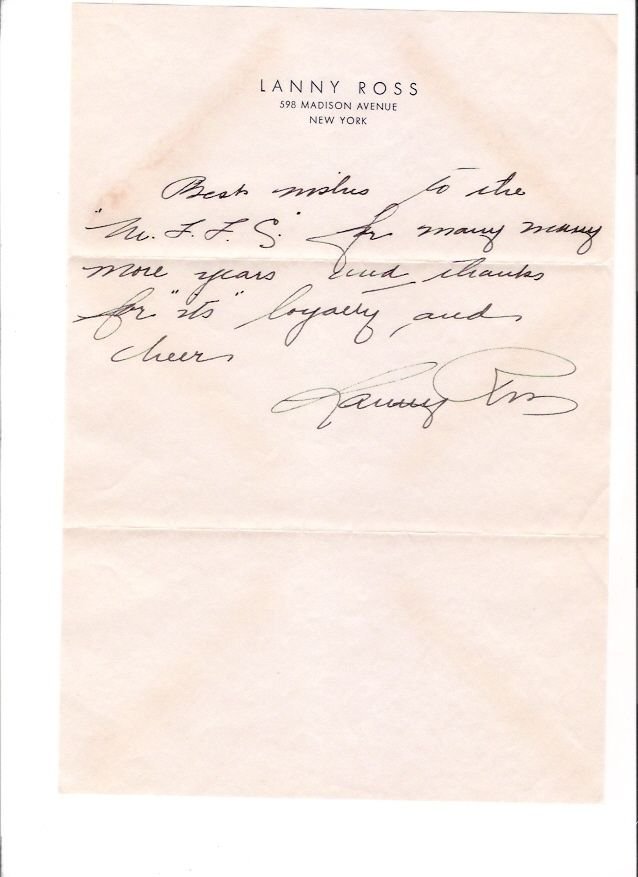 LANNY ROSS
598 MADISON AVENUE
NEW YORK
Best wishes to the
"M. F. F. S." for many many
more years and thanks
for "its" loyalty and
cheers
Lanny Ross